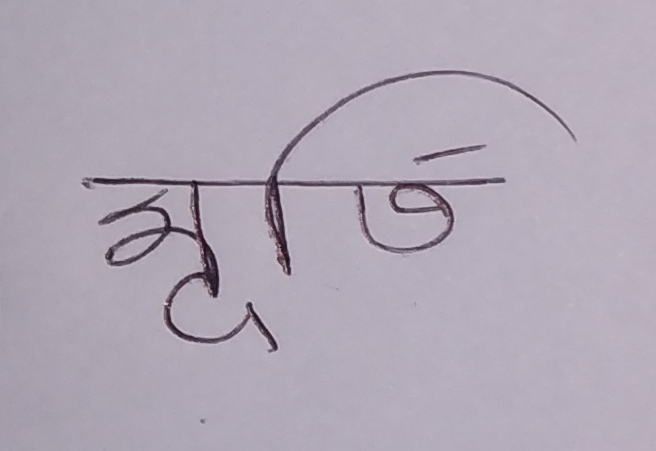 মূর্তি